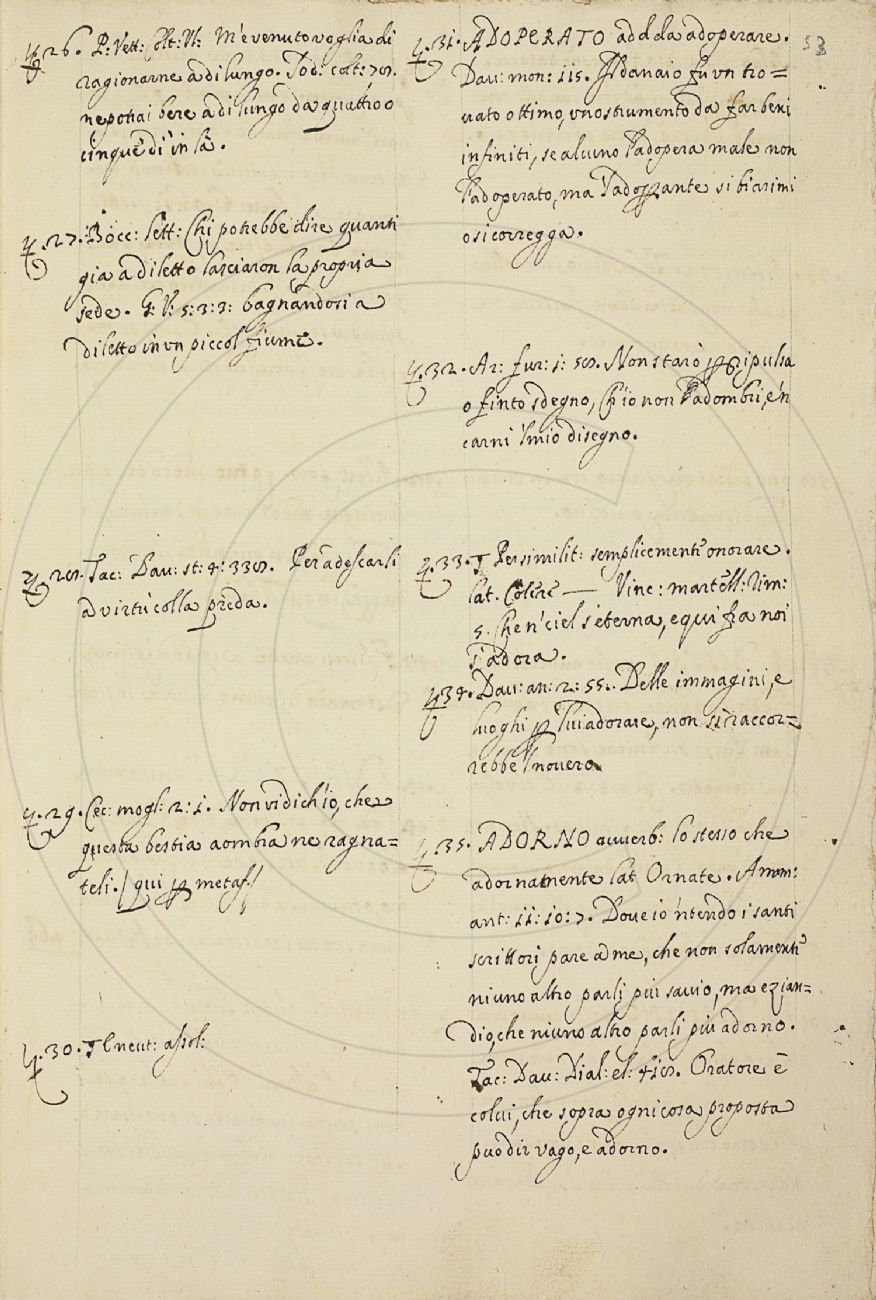 §. 26. P: Vett: Colt: Ul: M'è venuto voglia di
ragionarne a dilungo. Sod: colt: 78.
ne potrai bere a dilungo da quattro o
cinque dì in là.
§. 27. Bocc: lett: Chi potrebbe dire quanti
già a diletto lasciaron la propria
sede. G: V: 5: 3: 3: bagnandosi a
diletto in un piccol fiume.
§. 28. Tac: Dav: st: 4: 338. Per adescarli
a virtù colla preda.
§. 29. Cec: mogl: 2: 1. Non vidi ch'io, che
questa bestia aombra ne ragna=
teli. / qui p metaf/
§. 30. T Cneut: assol:
53
§. 31. ADOPERATO add da adoperare.
Dav: mon: 115. Il danaio fu un tro=
vato ottimo, uno strumento da far beni
infiniti, se alcuno l'adopera male non
l'adoperato, ma l'adopante si biasimi
o si corregga.
§. 32. Ar: fur: 1: 58. Non starò p ripulsa
o finto sdegno, Ch'io non l'adombri, e 'n
carni 'l mio disegno.
§. 33. T Per similit: semplicemente onorare.
lat. Colere — Vinc: martell: rim:
5. Che n' ciel s'eterna, e qui fra noi
s'adora.
§. 34. Dav: an: 2: 55. Delle immagini, e
luoghi p lui adorare, non si raccor=
rebbe 'l novero
§. 35. ADORNO avverb: lo stesso che
adornatamente lat Ornate. Amm:
ant: 11: 10: 7. Dove io 'ntendo i santi
scrittori pare a me, che non solamente
niuno altro parli più savio, ma ezian=
dio, che niuno altro parli più adorno.
Tac: Dav: Dial: el: 418. Oratore è
colui, che sopra ogni cosa proposta
può dir vago, e adorno.